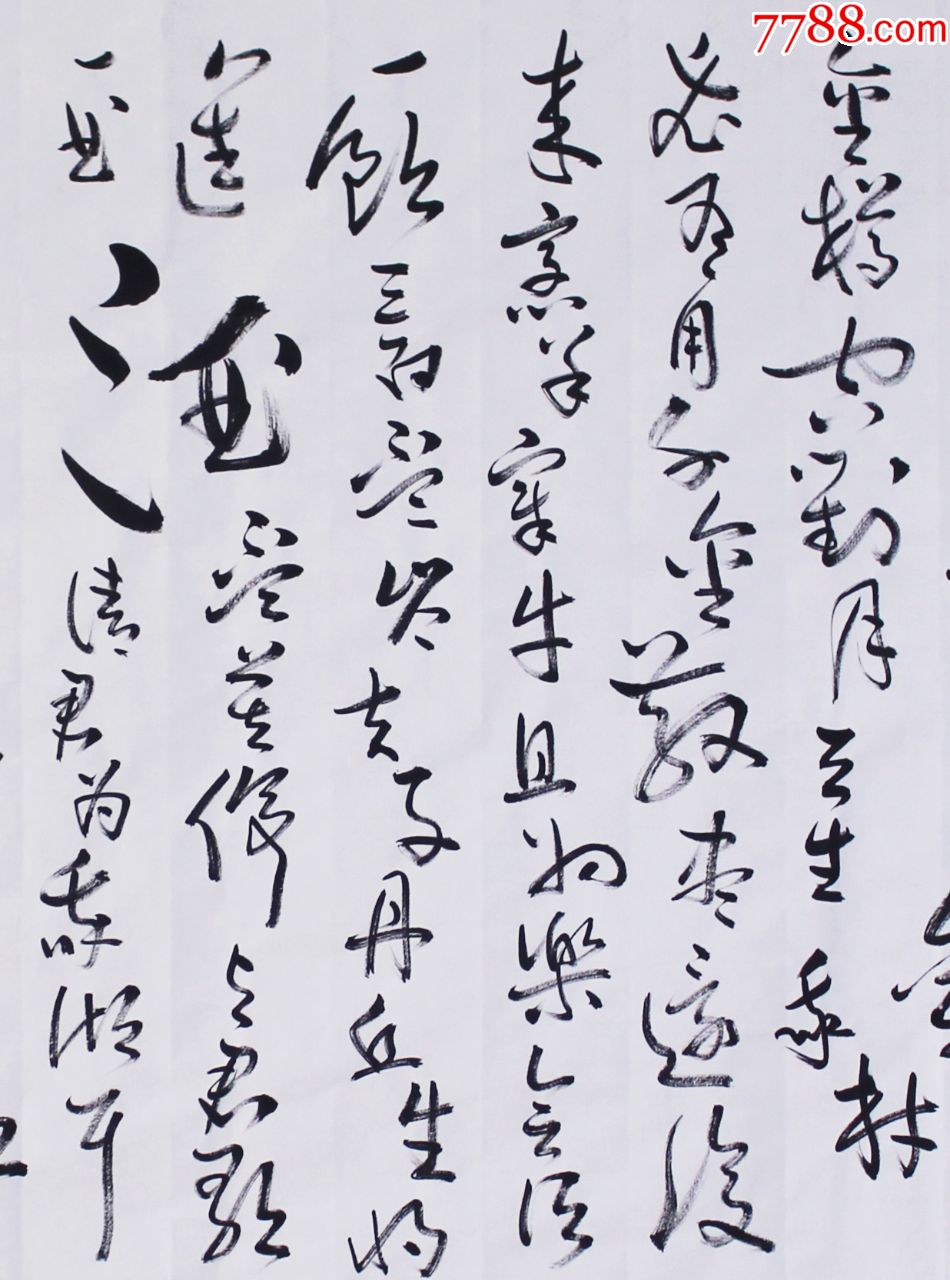 7788.com
金樽空對月天生我材
必有用千金散盡還復
來烹羊宰牛且為樂會須
一飲三百盃岑夫子丹丘生將
進酒盃莫停與君歌
一曲請君為我傾耳